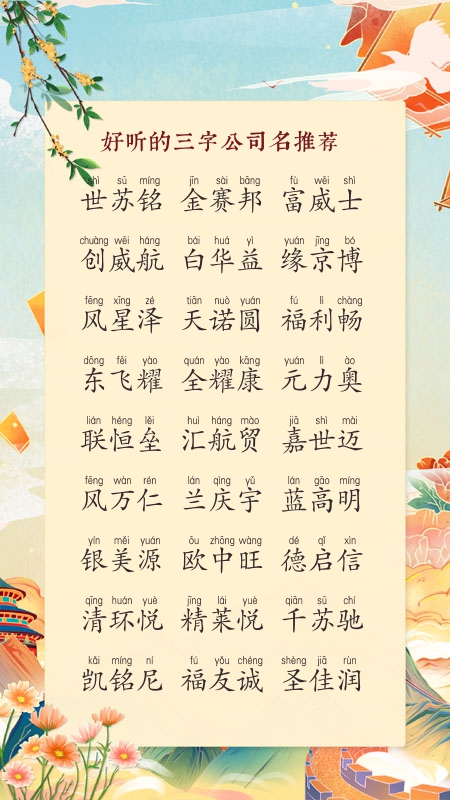 好听的三字公司名推荐
shì sū míng jīn sài bāng fù wēi shì
世苏铭 金赛邦 富威士
chuàng wēi háng bái huá yì yuán jīng bó
创威航 白华益 缘京博
fēng xīng zé tiān nuò yuán fú lì chàng
风星泽 天诺圆 福利畅
dōng fēi yào quán yào kāng yuán lì ào
东飞耀 全耀康 元力奥
lián héng lěi huì háng mào jiā shì mài
联恒垒 汇航贸 嘉世迈
fēng wàn rén lán qìng yǔ lán gāo míng
风万仁 兰庆宇 蓝高明
yín měi yuán ōu zhōng wàng dé qǐ xìn
银美源 欧中旺 德启信
qīng huán yuè jīng lái yuè qiān sū chí
清环悦 精莱悦 千苏驰
kǎi míng ní fú yǒu chéng shèng jiā rùn
凯铭尼 福友诚 圣佳润